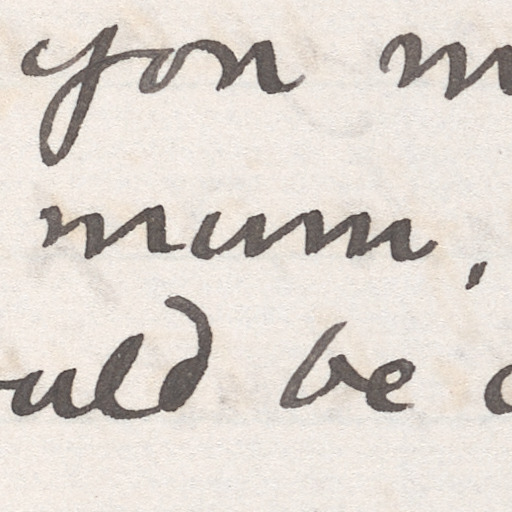 you m
mum,
ould be